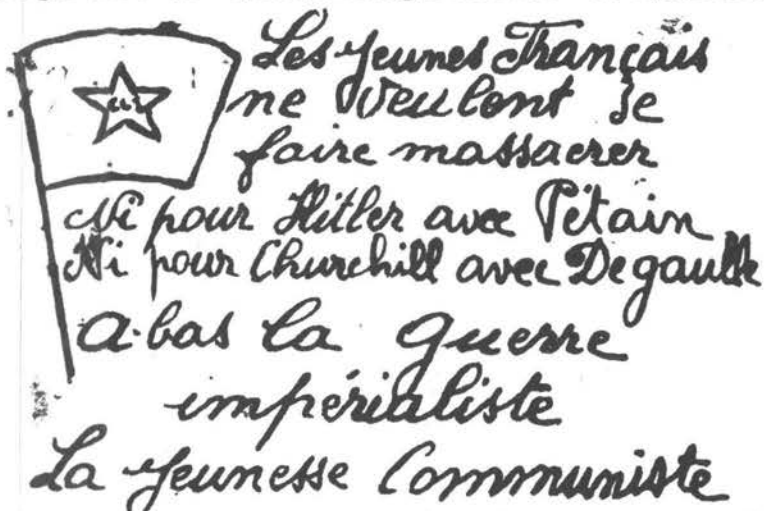 Les jeunes Français
ne veulent se
faire massacrer
Ni pour Hitler avec Pétain
Ni pour Churchill avec Degaulle
A-bas la guerre
impérialiste
La jeunesse Communiste